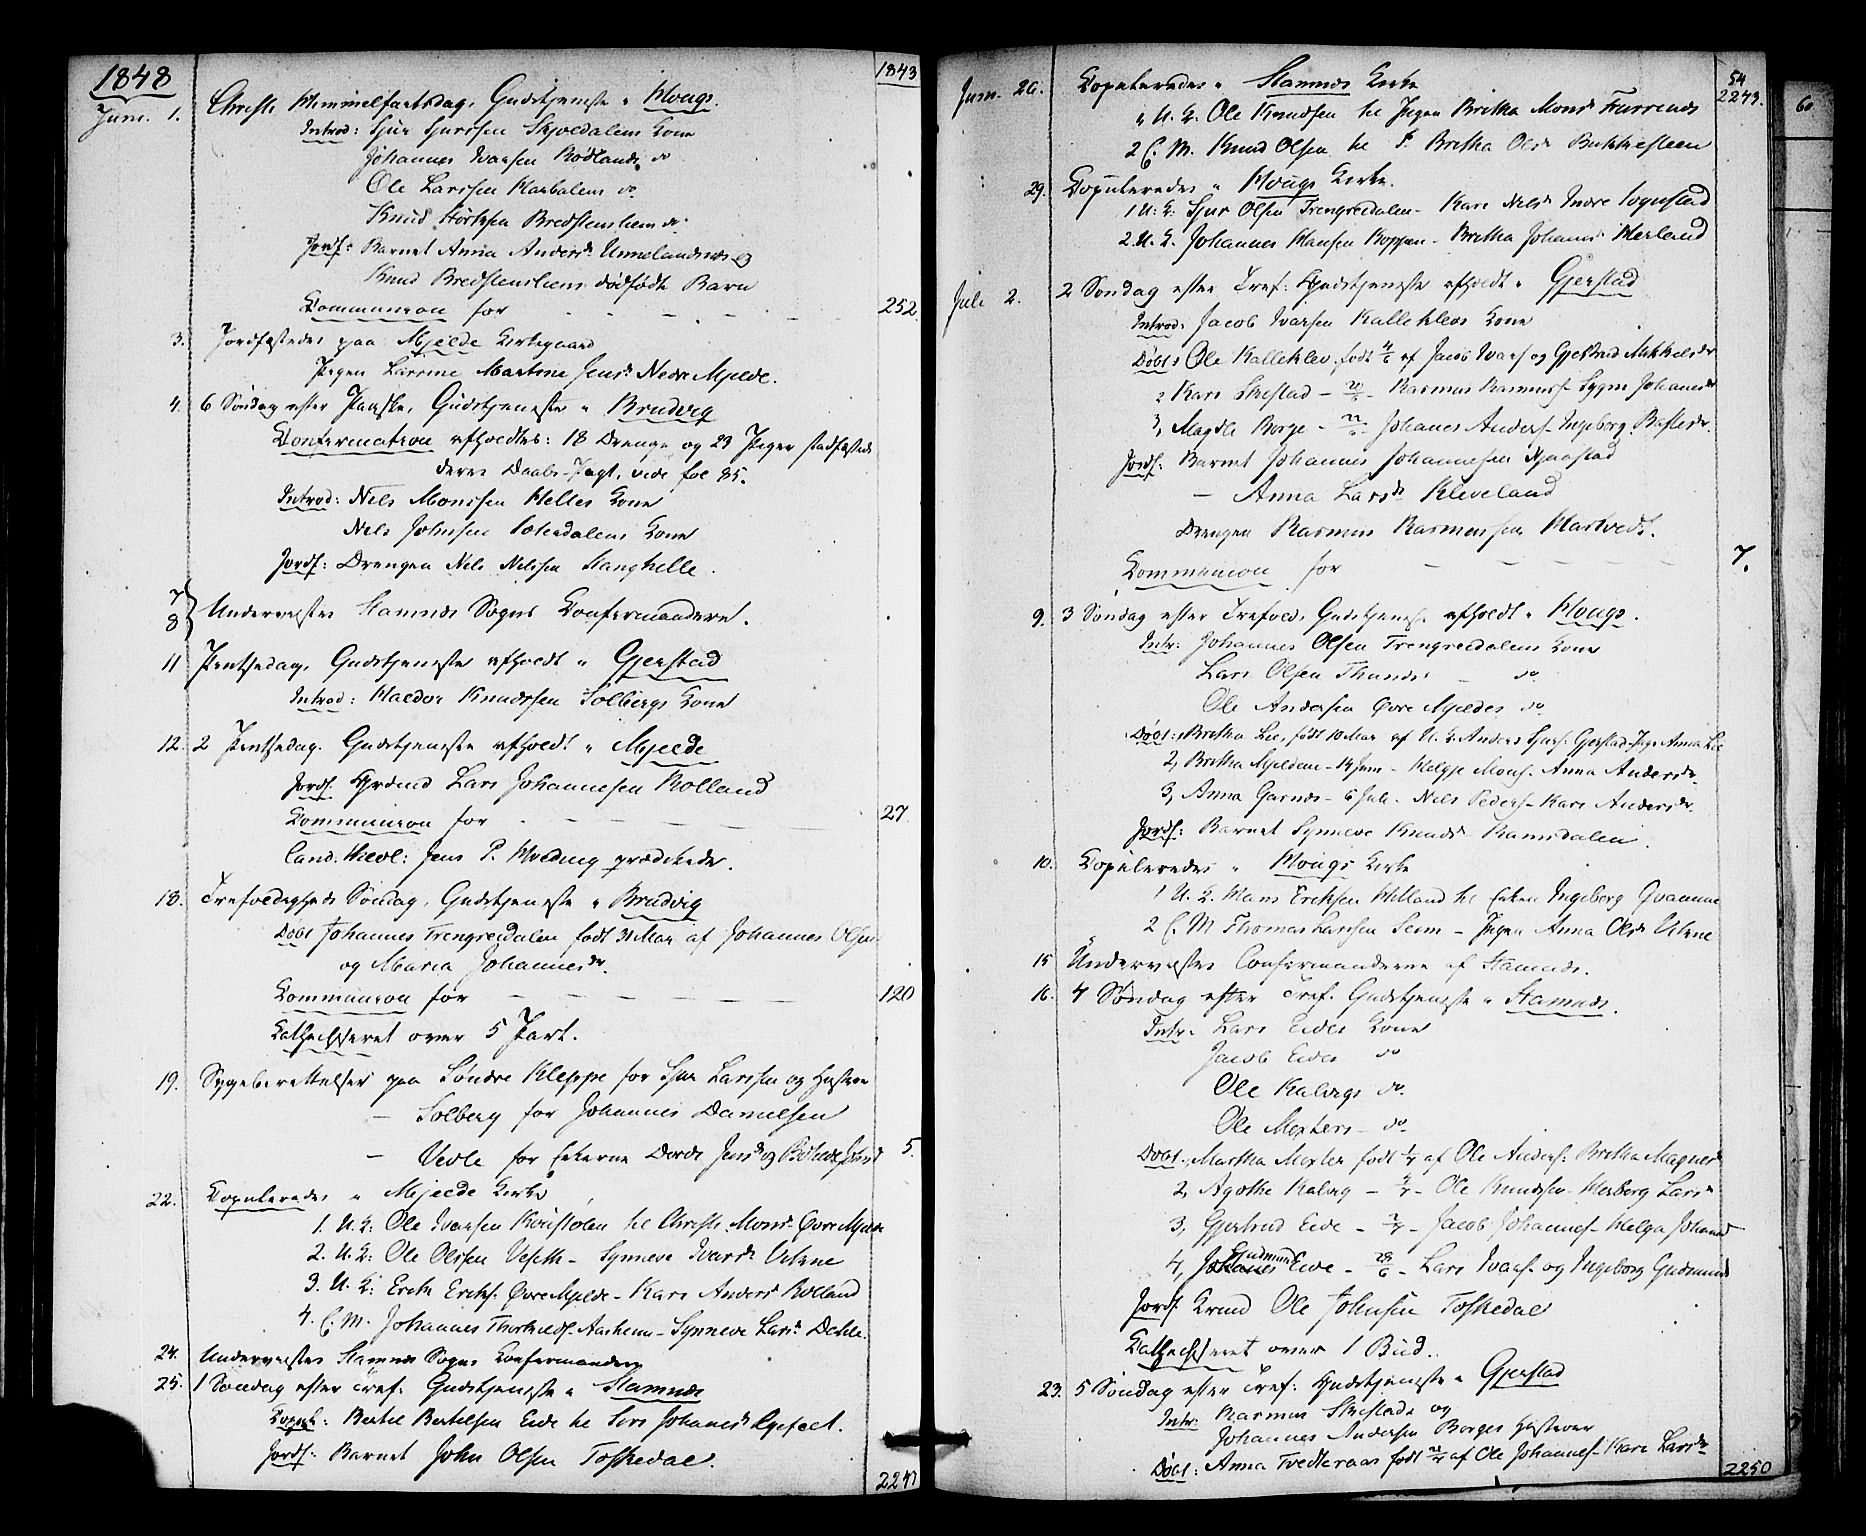 1848
1843
Juni. 1. Christi Himmelfartsdag, Gudstjeneste i Hougs.
Introd: Sjur Sjursen Kone
Johannes Ivarsen Rødlands do
Ole Larssen do
Knud Bredstensliens do
Jordf: Barnet Anna Andersdr Unnelandsnes og
Knud Bredstensliens dødfødte Barn
Communion for 252.
3. Jordfæstedes paa Mjelde Kirkegaard
Pigen Larsine Martine Jensdr Nedre Mjelde.
4. 6 Søndag efter Paaske, Gudstjeneste i Bruvig
Confirmation afholdtes: 18 Drenge og 23 Piger stadfæstede
deres Daabs-Pagt, vide fol 85.
Introd: Nils Monssen Helles Kone
Nils Johnsen Kone
Jordf: Drengen Nils Nilssen Stanghelle.
7
8 Underviistes Stamnæs Sogns Confirmandere.
11 Pintsedag, Gudstjeneste afholdt i Gjerstad
Introd: Haldor Knudssen Solbergs Kone
12. 2 Pintsedag. Gudstjeneste afholdt i Mjelde
Jordf. Lars Johannesen Rolland
Communion for 27
Cand. theol: Jens P. prædikede.
18. Trefoldigheds Søndag, Gudstjeneste i Bruvig
Døbt Johannes Trengreidalen født 31 Mai af Johannes Olsen
og Maria Johannesdr.
Communion for 120
Cathechiseret over 5 Part.
19. Sygeberettelser paa Søndre Kleppe for Sjur Larssen og Hustru
— Solberg for Johannes Danielsen
— Vevle for Enkerne Dorde Jensdr og 5.
22. Copuleredes i Mjelde Kirke
1. U. K: Ole Ivarsen til Christi Monsdr Øvre Mjelde
2. U. K: Ole Olssen Veseth - Synneve Ivarsdr
3. U. K: Erik Eriks. Øvre Mjelde - Kari Andersdr Rolland
4. E. M. Johannes Synneve Larsdr Dahle.
24. Underviistes Stamnæs Sogns Confirmandere
25. 1 Søndag efter Tref: Gudstjeneste i Stamnæs
Copul: Bertel Bertelsen Eide til Johannesdr
Jordf: Barnet John Olsen Toskedal.
2243
54
2243.
Juni. 26. Copuleredes i Stamnæs Kirke
1 U. K. Ole Knudsen til Pigen Britha Monsdr Furrenæs
2 E. M. Knud Olsen til P. Britha Olsdr
29. Copuleredes i Hougs Kirke.
1 U. K. Sjur Olsen Trengreidalen - Kari Nilsdr Indre
2. U. K. Johannes Hansen - Britha Johannesdr Herland
Juli 2. 2 Søndag efter Tref: Gudstjeneste afholdt i Gjerstad
Introd: Jacob Ivarsen Kalleklevs Kone
Døbt 1 Ole Kalleklev født 4/6 af Jacob Ivars. og Gjertrud Mikkelsdr
2 Kari Skistad - Rasmus Rasmuss. Sygni Johannesdr
3, Magdle Borge - Johanes Anders. Ingeborg
Jordf: Barnet Johannes Johannesen
— Anna Larsdr Kleveland
Drengen Rasmus Rasmussen Hartvedt.
Communion for 7.
9. 3 Søndag efter Trefold. Gudstjeneste afholdt i Hougs.
Intr: Johannes Olsen Trengreidalens Kone
Lars Olsen Thunes do
Ole Andersen Øvre Mjeldes do
Døbt: 1 Britha Lie, født 10 Mai af U. K. Anders Sjurs. Gjerstad Pige Anna Lie
2, Britha Mjeldem - 14 Juni - Helgje Mons. Anna Andersdr.
3, Anna Garnæs - 6 Juli - Nils Peders - Kari Andersdr.
Jordf: Barnet Synneve Knudsdr Ramsdalen.
10. Copuleredes i Hougs Kirke
1 U. K. Mons Eriksen til Enken Ingeborg Qvamme
2 E. M Thomas Larssen Seim - Pigen Anna Olsdr
15 Underviistes Confirmanderne af Stamnæs.
16. 4 Søndag efter Tref. Gudstjeneste i Stamnæs.
Intr. Lars Eides Kone
Jacob Eides do
Ole Kalvigs do
Ole Moxters do
Døbt 1, Martha Moxter født af Ole Anders. Britha Magnesdr
2, Agothe Kalvig - Ole Knudsen - Herborg Larsdr
3, Gjertrud Eide - Jacob Johannes. Helga Johannesdr
Gudmund
4, Johanes Eide - 28/6 - Lars Ivars. og Ingeborg Gudmundsdr
Jordf. Ole Johnsen Toskedal
Cathechiseret over 1 Bud.
23. 5 Søndag efter Tref: Gudstjeneste i Gjerstad
Intr: Rasmus Skistads og
Johannes Andersen Borges Hustruer
Døbt: Anna Tvedteraas født af Ole Johannes. Kari Larsdr
2250
60